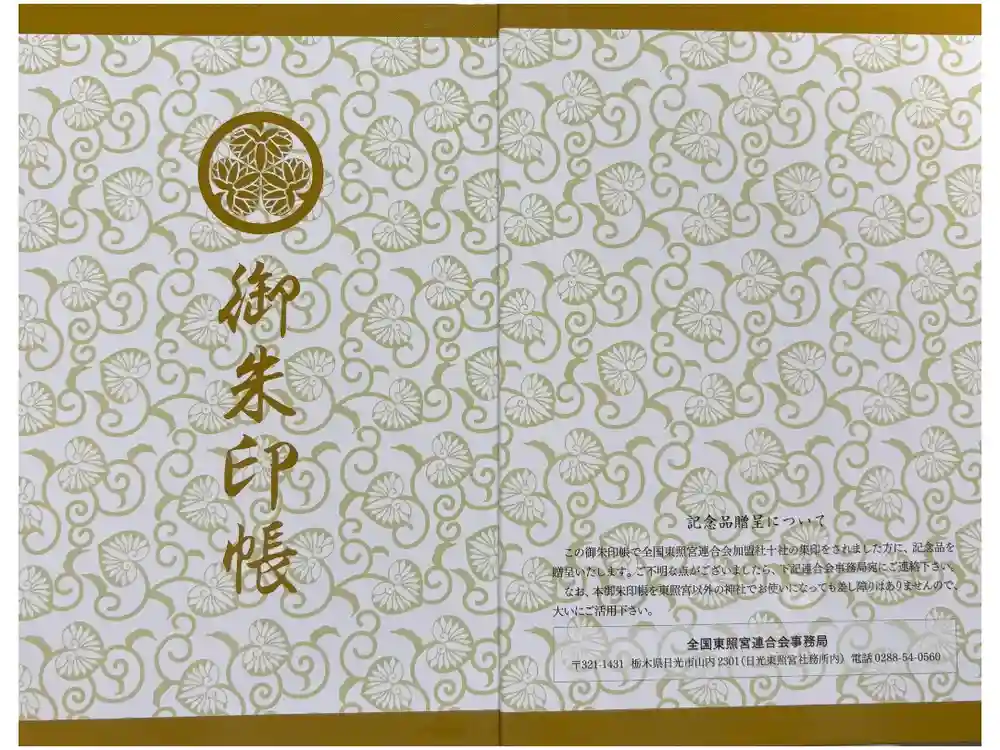 御朱印帳
記念品贈呈について
この御朱印帳で全国東照宮連合会加盟社十社の集印をされました方に、記念品を
贈呈いたします。ご不明な点がございましたら、下記連合会事務局宛にご連絡下さい。
なお、本御朱印帳を東照宮以外の神社でお使いになっても差し障りはありませんので、
大いにご活用下さい。
全国東照宮連合会事務局
〒321-1431 栃木県日光市山内2301(日光東照宮社務所内) 電話0288-54-0560